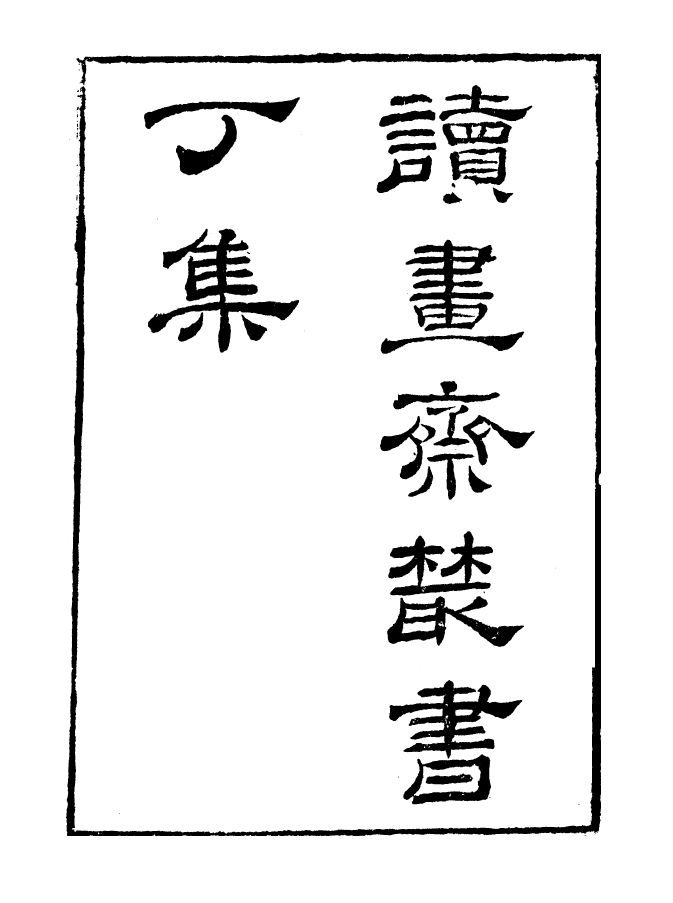 讀畫齋叢書
丁集